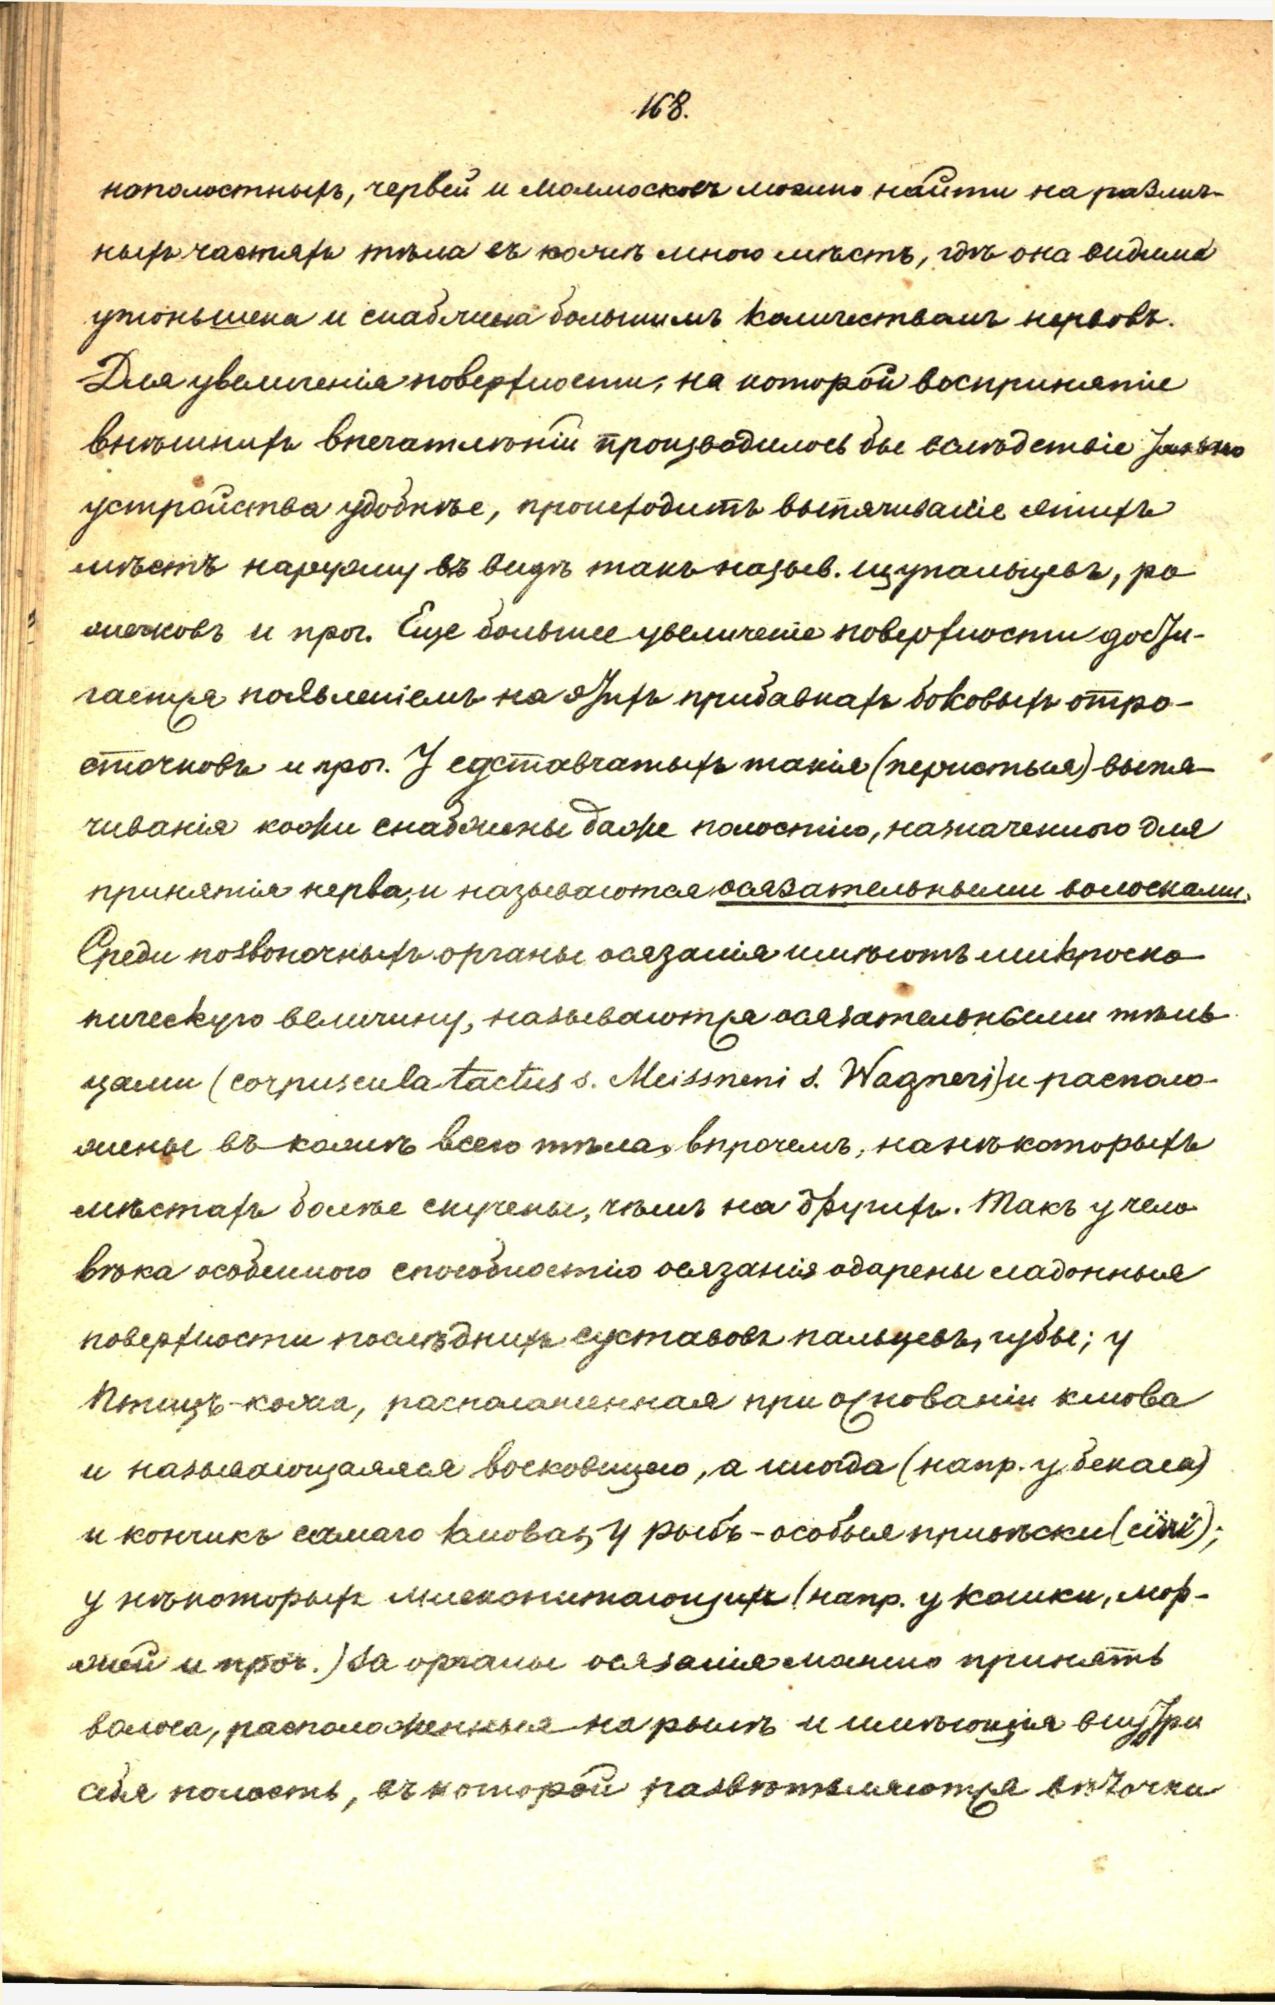 168.
нополостныхъ, червей и моллюсковъ можно найти на различ-
ныхъ частяхъ тѣла въ кожѣ много мѣстъ, гдѣ она видимо
утоньшена и снабжена большимъ количествомъ нервовъ.
Для увеличенія поверхности, на которой воспринятіе
внѣшнихъ впечатлѣній производилось бы вслѣдствіе такого
устройства удобнѣе, происходитъ выпячиваніе этихъ
мѣстъ наружу въ видѣ такъ назыв. щупальцевъ, ро
жечковъ и проч. Еще большее увеличеніе поверхности дости-
гается появленіемъ на этихъ прибавкахъ боковыхъ отро-
сточковъ и проч. У суставчатыхъ такія (перистыя) выпя-
чиванія кожи снабжены даже полостію, назначенною для
принятія нерва, и называются осязательными волосками.
Среди позвоночныхъ органы осязанія имѣютъ микроско
пическую величину, называются осязательными тѣль
цами (corpuscula tactus s. Meissneri s. Wagneri) и располо-
жены въ кожѣ всего тѣла, впрочемъ, на нѣкоторыхъ
мѣстахъ болѣе скучены, чѣмъ на другихъ. Такъ у чело
вѣка особенною способностію осязанія одарены ладонныя
поверхности послѣднихъ суставовъ пальцевъ, губы; у
птицъ - кожа, расположенная при основаніи клюва
и называющаяся восковицею, а иногда (напр. у бекаса)
и кончикъ самаго клюва; у рыбъ - особыя привѣски (cirri);
у нѣкоторыхъ млекопитающихъ (напр. у кошки, мор-
жей и проч.) за органы осязанія можно принять
волоса, расположенныя на рылѣ и имѣющія внутри
себя полость, въ которой развѣтвляются вѣточки